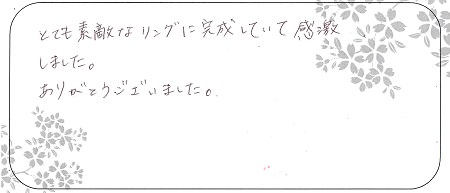 とても素敵なリングに完成していて感激
しました。
ありがとうございました。